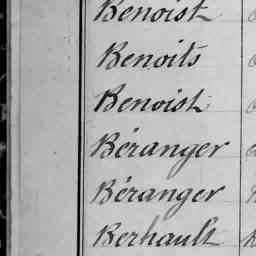 Benoist
Benoits
Benoist
Béranger
Béranger
Berhault